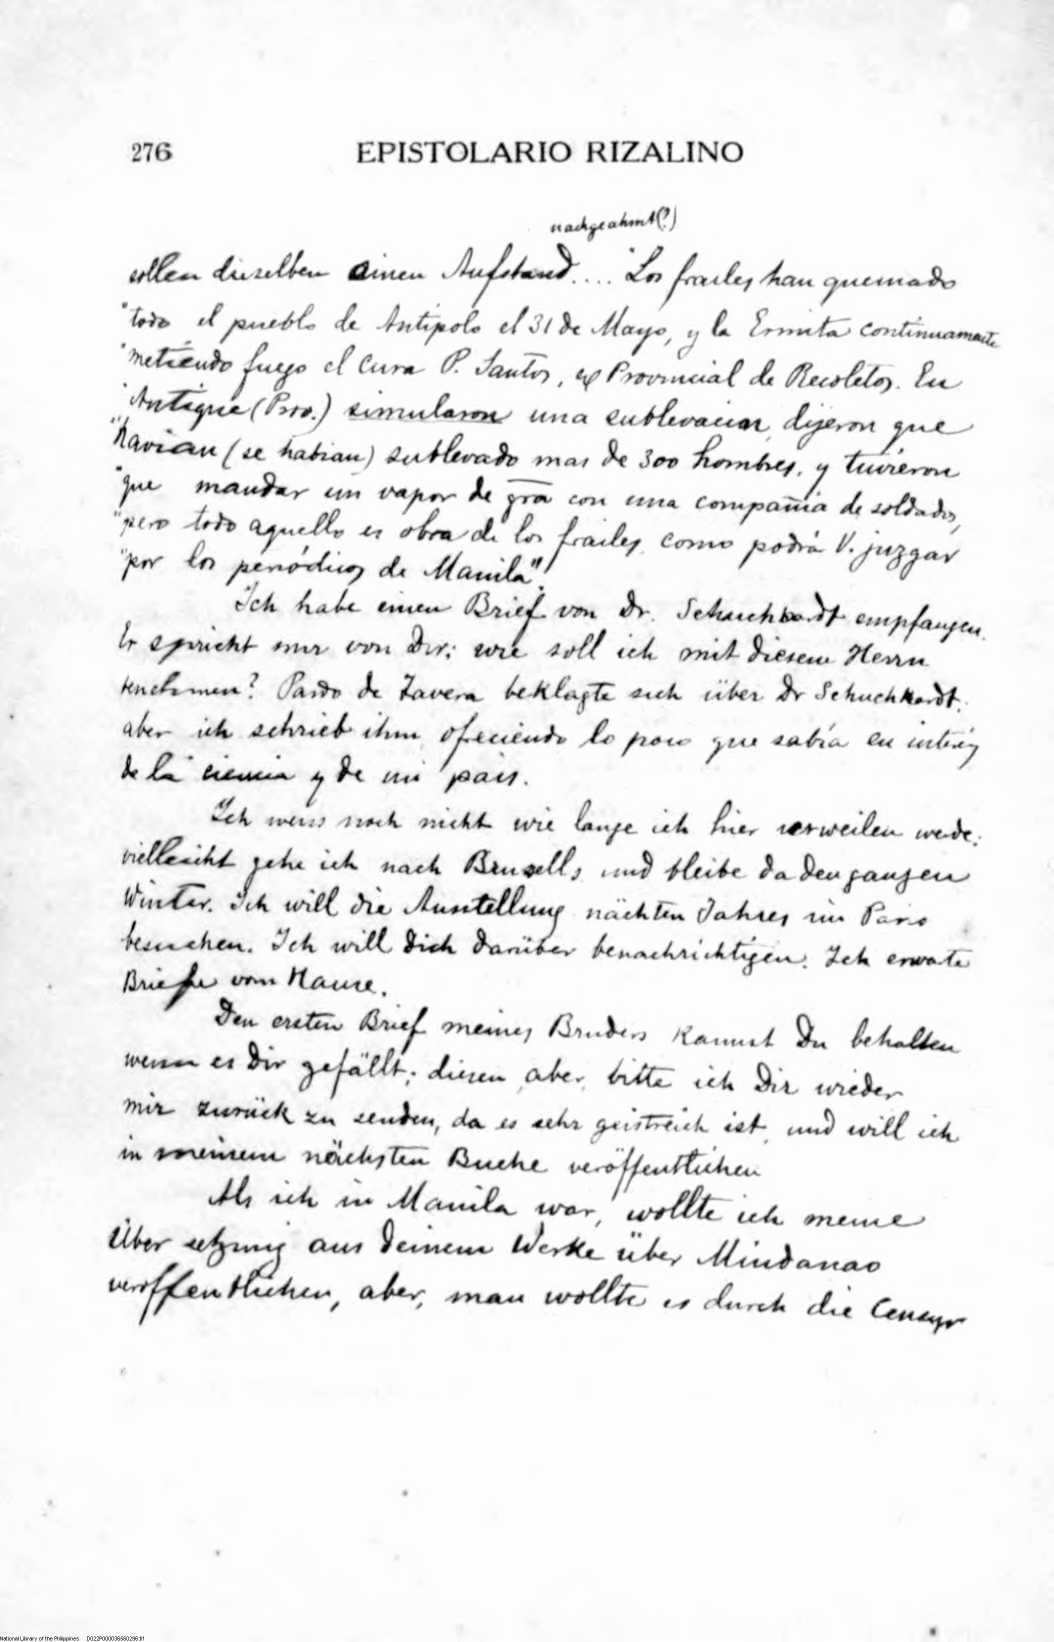 276 EPISTOLARIO RIZALINO
nachgeahmt(?)
sollen dieselben einen Aufstand.... "Los frailes han quemado
"todo el pueblo de Antipolo el 31 de Mayo, y la Ermita continuamente
"metiendo fuego el Cura P. Santos, ex Provincial de Recoletos. En
"Antique (Prov.) simularon una sublevacion, dijeron que
"havian (se habian) sublevado mas de 300 hombres, y tuvieron
"que mandar un vapor de gra con una compañia de soldados,
"pero todo aquello es obra de los frailes, como podrá V. juzgar
"por los periódicos de Manila".
Ich habe einen Brief von Dr. Schuchhardt empfangen.
Er spricht mir von Dir: wie soll ich mit diesem Herrn
benehmen? Pardo de Tavera beklagte sich über Dr Schuchhardt;
aber ich schrieb ihm ofreciendo lo poco que sabía en interés
de la ciencia y de mi pais.
Ich weiss noch nicht wie lange ich hier verweilen werde;
vielleicht gehe ich nach Brusells und bleibe da den ganzen
Winter. Ich will die Ausstellung nächten Jahres in Paris
besuchen. Ich will dich darüber benachrichtigen. Ich erwarte
Briefe vom Hause.
Den ersten Brief meines Bruders kannst Du behalten
wenn es Dir gefällt; diesen, aber, bitte ich Dir wieder
mir zurück zu senden, da es sehr geistreich ist, und will ich
in meinem nächsten Buche veröffentlichen
Als ich in Manila war, wollte ich meine
Übersetzung aus deinem Werke über Mindanao
veröffentlichen, aber, man wollte es durch die Censur
National Library of the Philippines